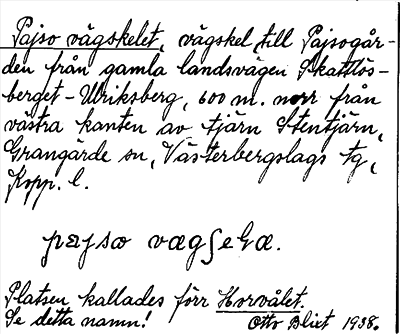 Pajso vägskelet, vägskel till Pajsogår-
den från gamla landsvägen Skattlös-
berget - Ulriksberg, 600 m. norr från
västra kanten av tjärn Stentjärn,
Grangärde sn, Västerbergslags tg,
Kopp. l.
Platsen kallades förr Horvålet.
Se detta namn! Otto Blixt 1938.